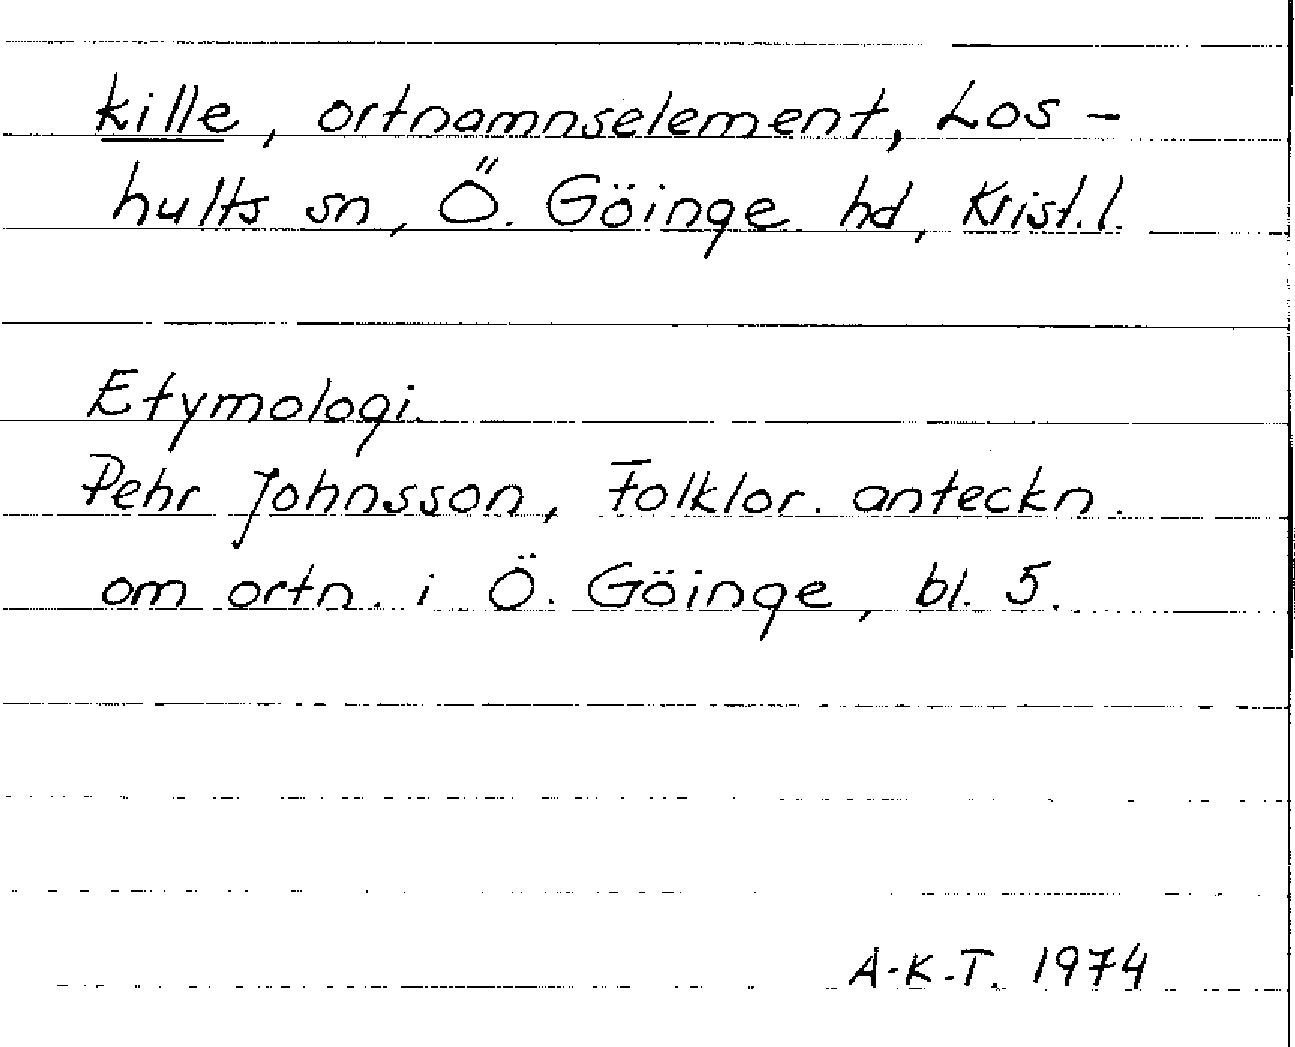 kille, ortnamnselement, Los-
hults sn, Ö. Göinge hd, Krist.l.
Etymologi.
Pehr Johnsson, Folklor. anteckn.
om ortn. i Ö. Göinge, bl. 5.
A-K-T. 1974